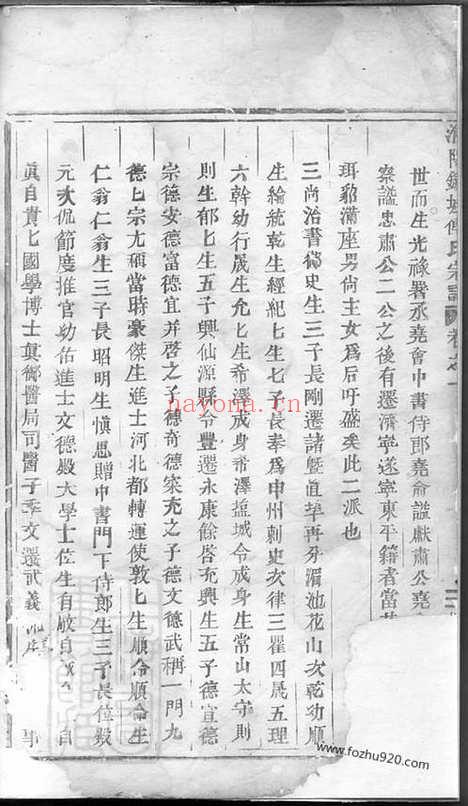 傅氏宗譜 卷之一
世而生光祿署丞堯會中書侍郎堯俞謚獻肅公堯
察謚忠肅公二公之後有遷濟寧遂寧東平籍者當其
珥貂滿座男尚主女爲后吁盛矣此二派也
三尚治書御史生三子長剛遷諸暨直埠再分湄池花山次乾幼順
生綸統乾生經紀七生七子長奉爲申州刺史次律三瞿四晟五理
六幹幼行晟生允七生希澤成身希澤塩城令成身生常山太守則
則生郁七生五子興仙源縣令豐遷永康餘啓充興生五子德宣德
宗德安德富德宜并啓之子德奇德寀充之子德文德武稱一門九
德七宗尤碩當時豪傑生進士河北都轉運使敦七生順命順命生
仁翁仁翁生三子長昭明生慎思贈中書門下侍郎生三子長位數
元次侃節度推官幼佑進士文德殿大學士位生自敏自 自
眞自貴七國學博士眞御醫局司醫子孝文遷武義
www.fozhu920.com
nayona.cn